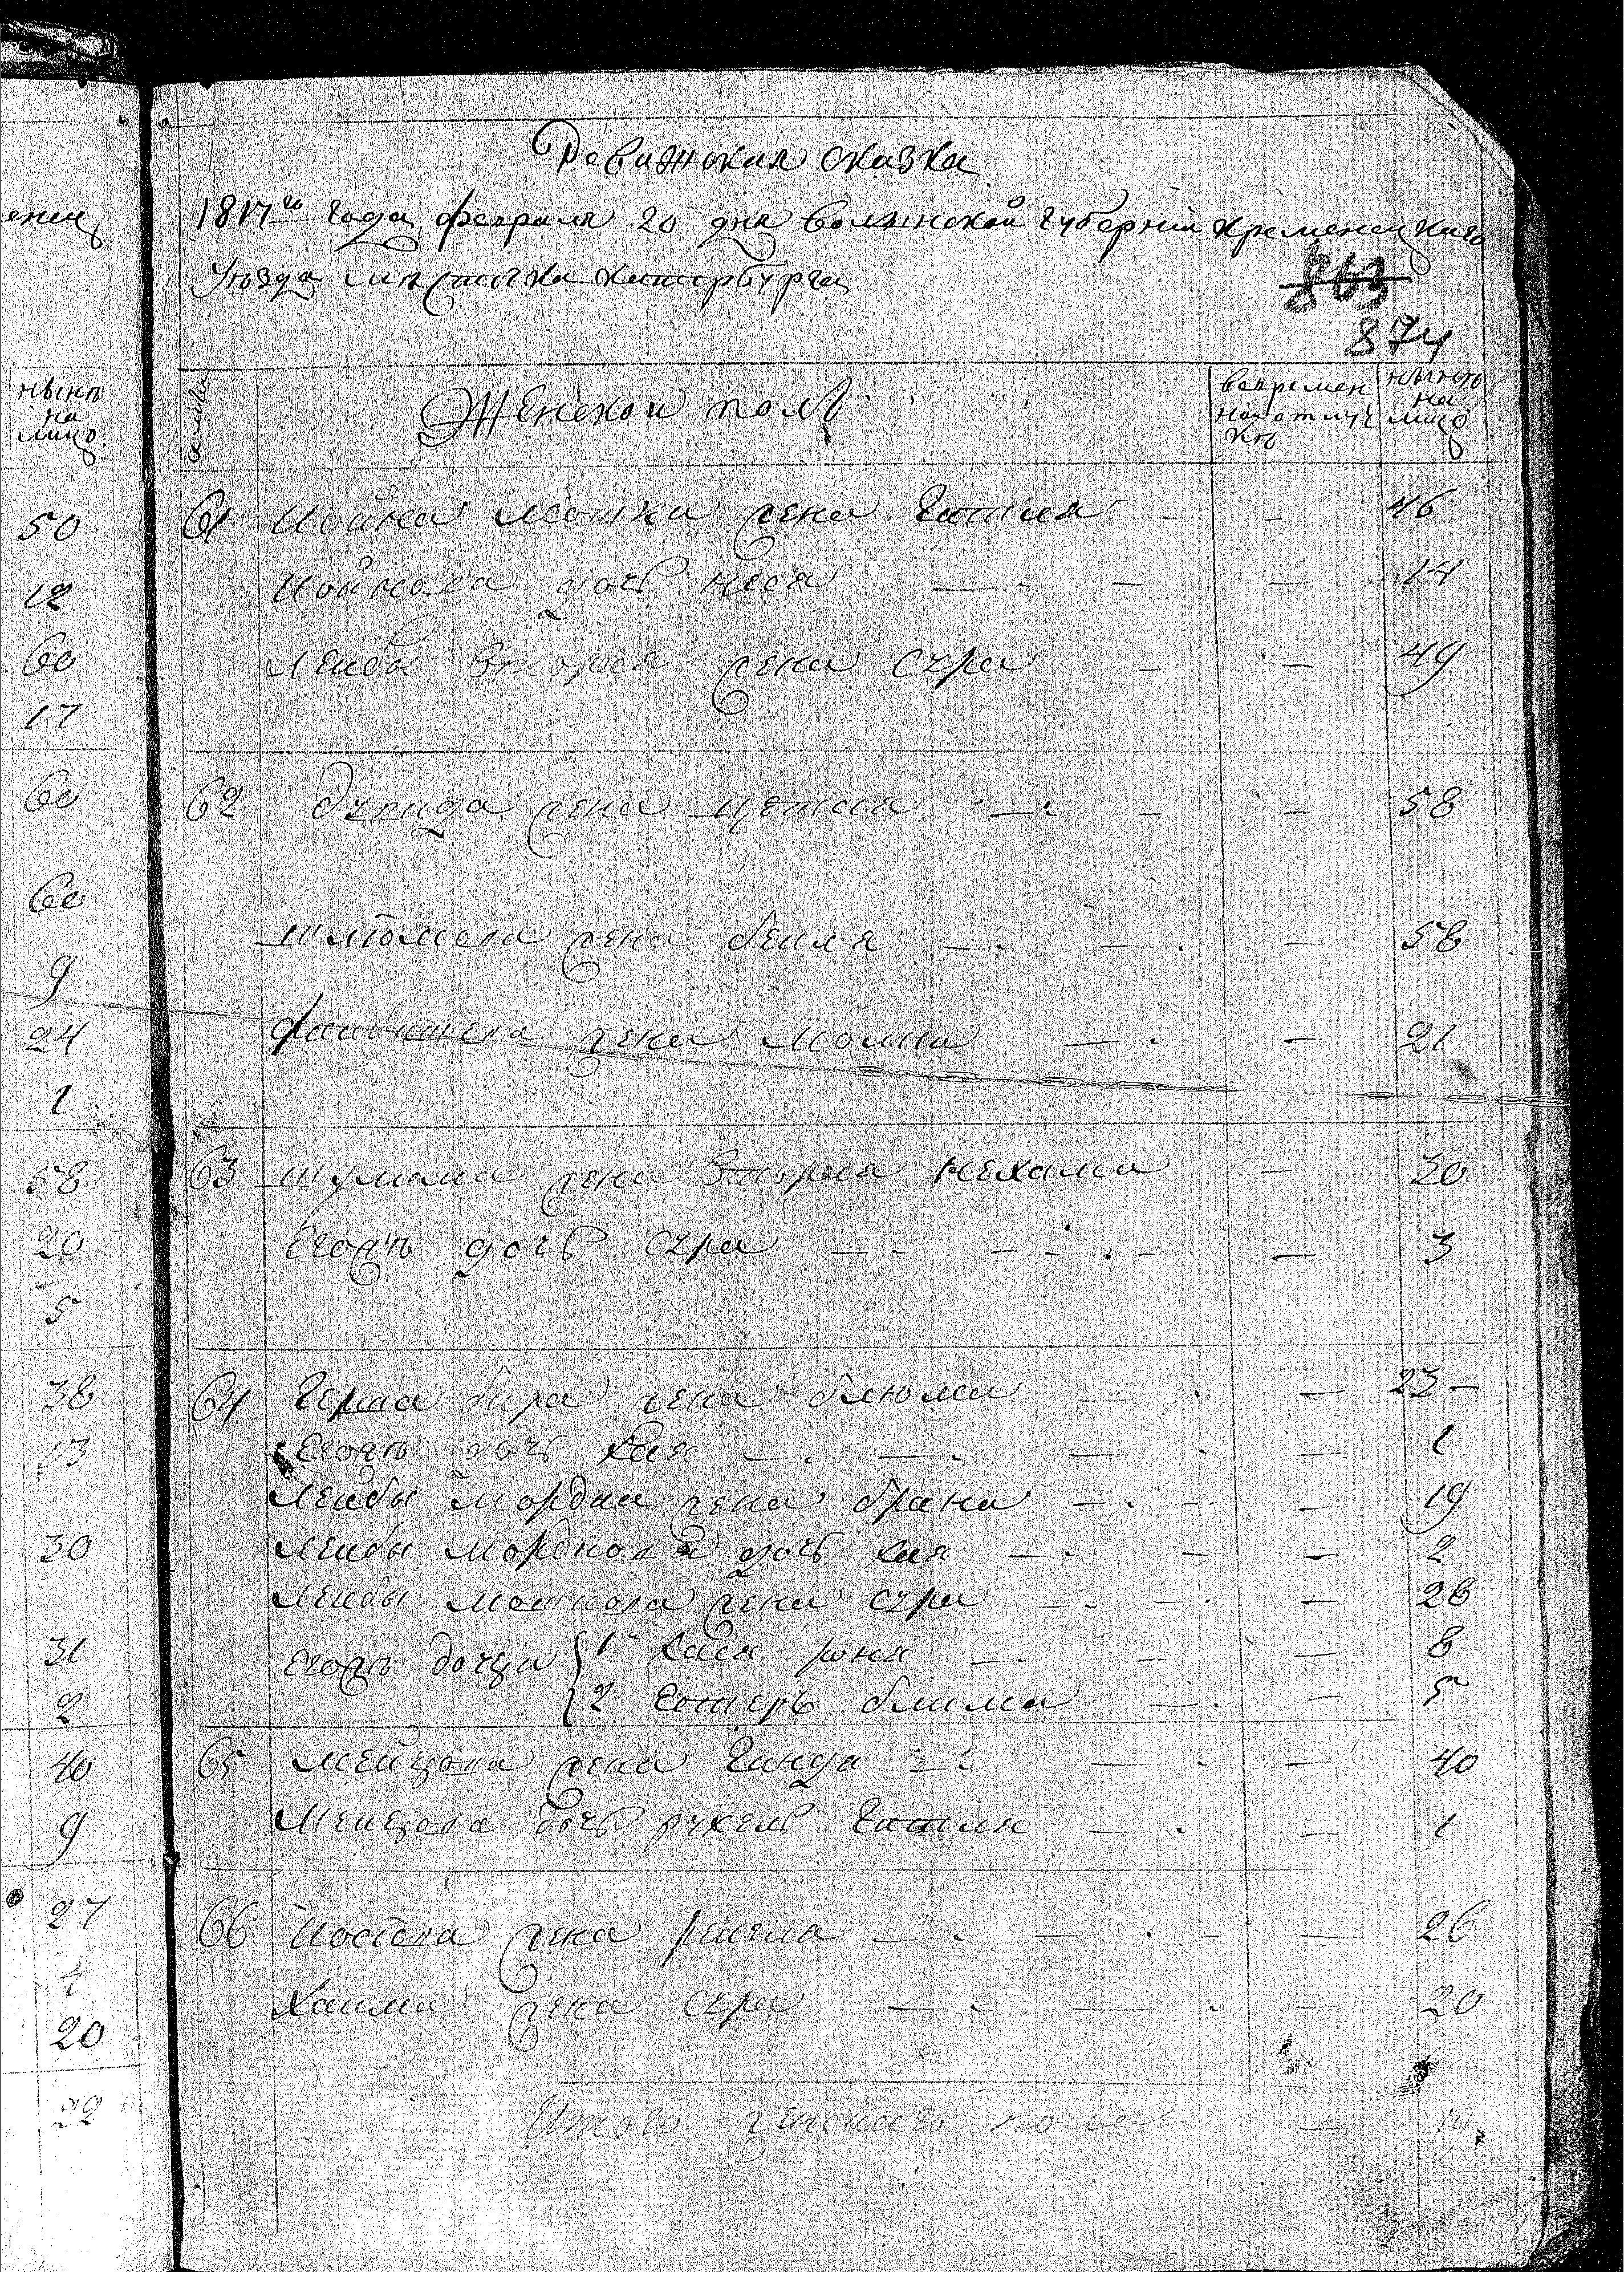 енец
ныне
на
лицо
50
12
60
17
60
60
9
24
1
58
20
5
38
13
30
31
2
40
9
27
4
20
Ревижская сказка
1817го года февраля 20 дня волынской губернии кременецкаго
Уезда местечка катербурга
863
874
Женской полъ
вовремен
ной отлуч
ке
ныне
на
лицо
61 Иойна Мошки жена Гитля — — 46
Иойнова дочь Неся — — — 14
Лейбы вторая жена Сура — — 49
62 жена — — — 58
Шлiомова жена бейля — — — 58
Файвишева жена Молка — — 21
63 Шулима жена вторая Нехама — 30
Егожъ дочь Сура — — — — 3
64 Герша жена блюма — — 23 —
Егожъ дочь Хая — — — — 1
Лейбы Мордка жена брана — — — 19
Лейбы Мордкова дочь Хая — — — 2
Лейбы Мошкова жена Сура — — — 28
Егожъ дочери 1я Хася — — — 8
2 Естеръ блима — — 5
65 жена Гинда — — — 40
дочь рухель Гитля — — 1
66 Иосiова жена — — — — 26
Хаима жена Сура — — — 20
Итого женскаго пола —